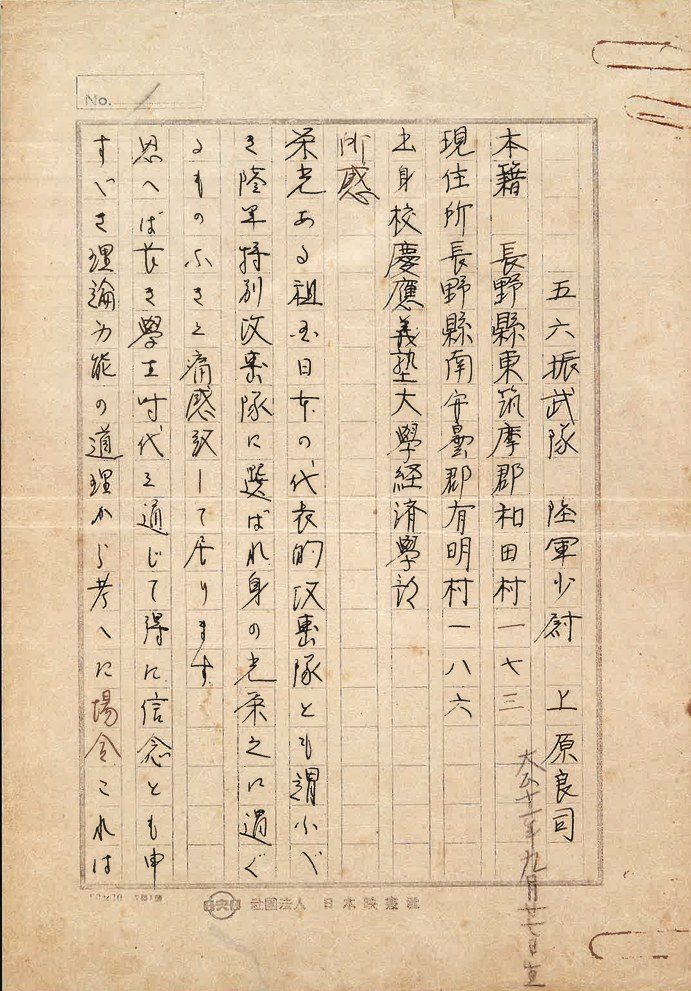 No. 1
五六振武隊　陸軍少尉　上原良司
大正十一年九月廿七日生
本籍　長野縣東筑摩郡和田村一七三
現住所長野縣南安曇郡有明村一八六
出身校慶應義塾大學経済學部
所感
栄光ある祖国日本の代表的攻撃隊とも謂ふべ
き陸軍特別攻撃隊に選ばれ身の光栄之に過ぐ
るものなきと痛感致して居ります
思へば長き學生時代を通じて得た信念とも申
すべき理論万能の道理から考へた場合これは
社團法人 日本映畫社